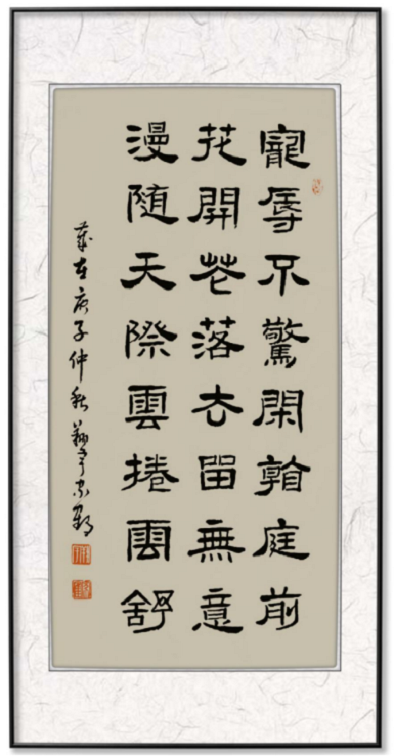 寵辱不驚閑看庭前
花開花落去留無意
漫隨天際雲捲雲舒
歲在庚子仲秋